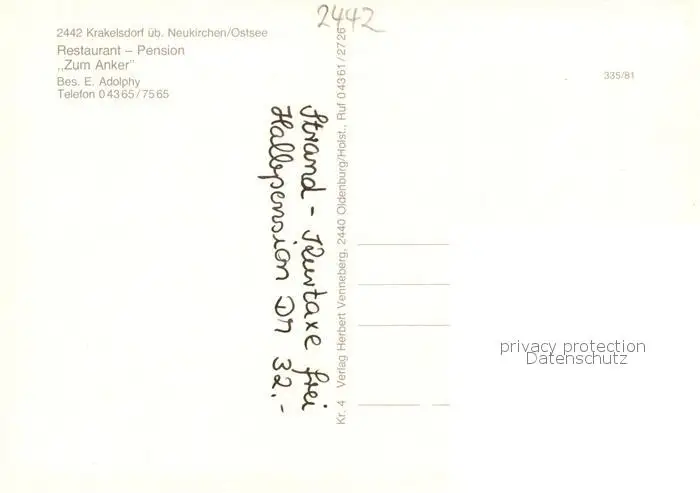 2442
2442 Krakelsdorf üb. Neukirchen/Ostsee
Restaurant – Pension
„Zum Anker"
Bes. E. Adolphy
Telefon 0 43 65 / 75 65
335/81
Strand - Kurtaxe frei
Halbpension DM 32.-
Kr. 4 Verlag Herbert Venneberg, 2440 Oldenburg/Holst., Ruf 0 43 61 / 27 26
privacy protection
Datenschutz